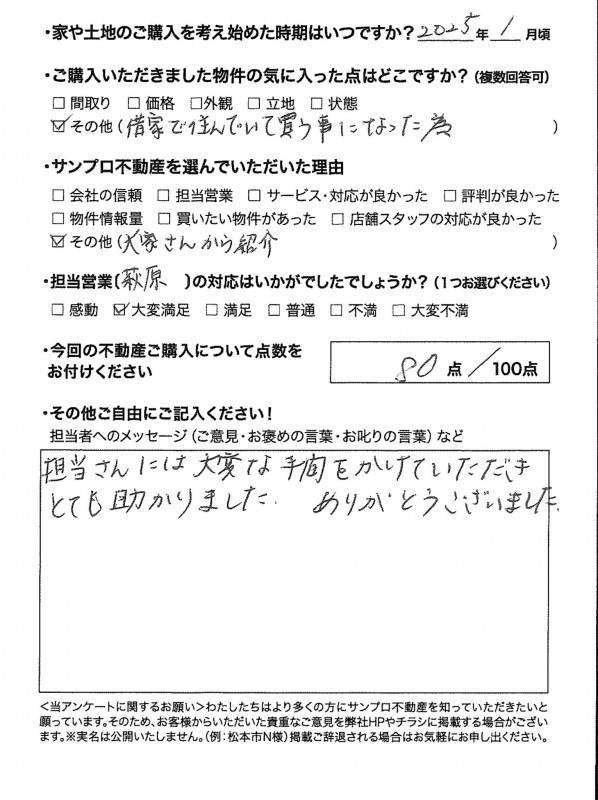 ・家や土地のご購入を考え始めた時期はいつですか？ 2025年 1 月頃
・ご購入いただきました物件の気に入った点はどこですか？（複数回答可）
□ 間取り □ 価格 □外観 □ 立地 □ 状態
☑ その他（借家で住んでいて買う事になった為）
・サンプロ不動産を選んでいただいた理由
□ 会社の信頼 □ 担当営業 □ サービス・対応が良かった □ 評判が良かった
□ 物件情報量 □ 買いたい物件があった □ 店舗スタッフの対応が良かった
☑ その他（大家さんから紹介）
・担当営業〔萩原 〕の対応はいかがでしたでしょうか？（1つお選びください）
□ 感動 ☑ 大変満足 □ 満足 □ 普通 □ 不満 □ 大変不満
・今回の不動産ご購入について点数を
お付けください
80 点／100点
・その他ご自由にご記入ください！
担当者へのメッセージ（ご意見・お褒めの言葉・お叱りの言葉）など
担当さんには大変な手間をかけていただき
とても助かりました. ありがとうございました.
＜当アンケートに関するお願い＞わたしたちはより多くの方にサンプロ不動産を知っていただきたいと
願っています。そのため、お客様からいただいた貴重なご意見を弊社HPやチラシに掲載する場合がござい
ます。※実名は公開いたしません。（例：松本市N様）掲載ご辞退される場合はお気軽にお申し出ください。